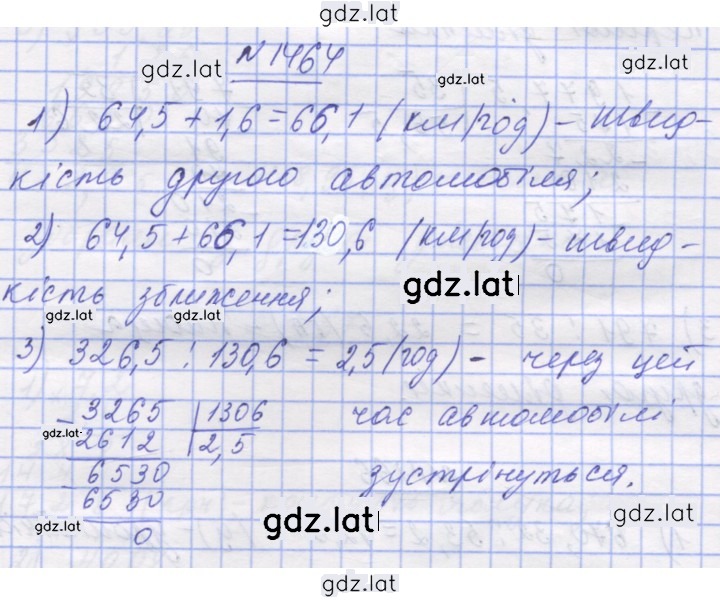 gdz.lat
N 1464
gdz.lat gdz.lat
1) 64,5 + 1,6 = 66,1 (км/год) - швид-
кість другого автомобіля;
2) 64,5 + 66,1 = 130,6 (км/год) - швид-
кість зближення;
gdz.lat
gdz.lat gdz.lat
3) 326,5 : 130,6 = 2,5 (год) - через цей
час автомобілі
зустрінуться.
3265 | 1306
2612 | 2,5
gdz.lat
6530
6530
0
gdz.lat gdz.lat gdz.lat
gdz.lat